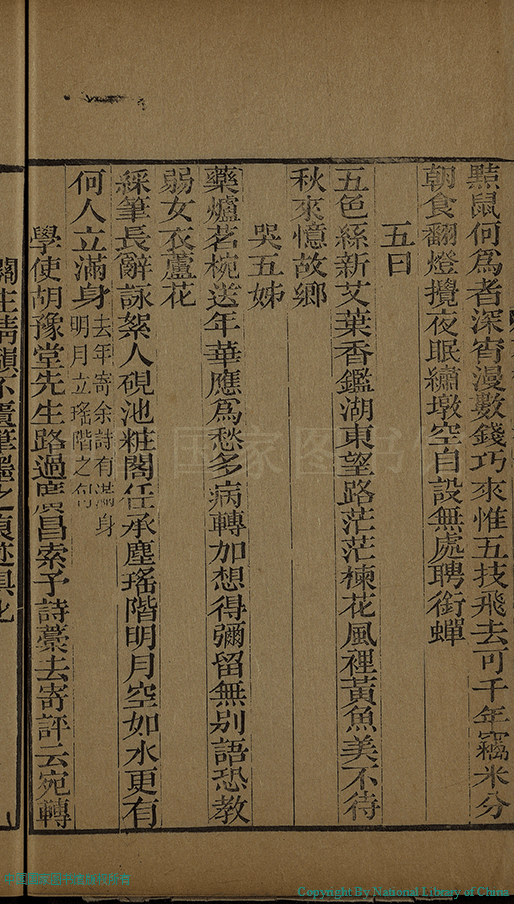 黠鼠何爲者深宵漫數錢巧來惟五技飛去可千年竊米分
朝食翻燈攪夜眠繡墩空自設無處聘銜蟬
五日
五色絲新艾葉香鑑湖東望路茫茫楝花風裡黃魚美不待
秋來憶故鄉
哭五姊
藥爐茗椀送年華應爲愁多病轉加想得彌留無別語恐教
弱女衣蘆花
綵筆長辭詠絮人硯池粧閣任承塵瑤階明月空如水更有
何人立滿身去年寄余詩有滿身
明月立瑤階之句
學使胡豫堂先生路過廣昌索予詩藁去寄評云宛轉
Copyright By National Library of China